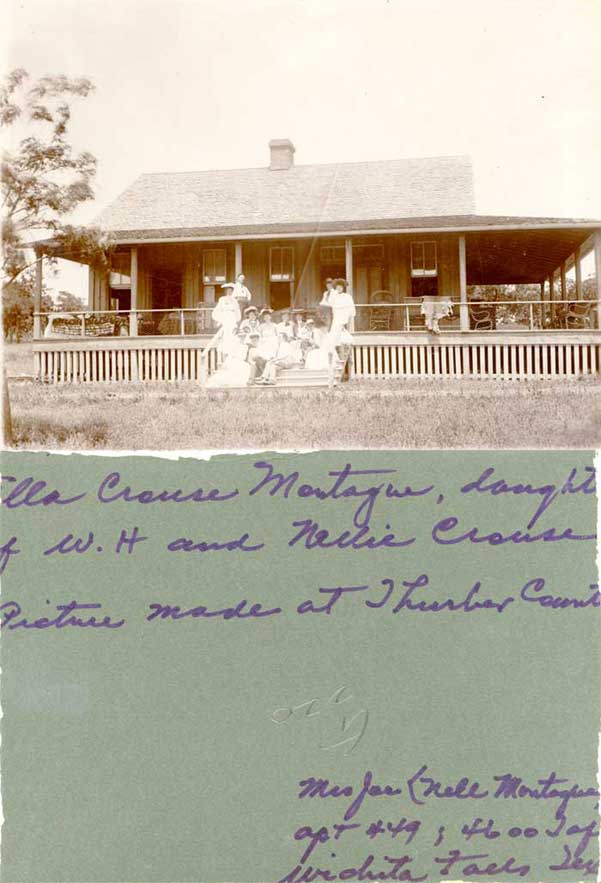 Ella Crouse Montague, daught
of W. H and Nellie Crouse
Picture made at Thurber Count
Mrs Joe (Nell Montague
apt #49 ; 4600 Taf
Wichita Falls Tex